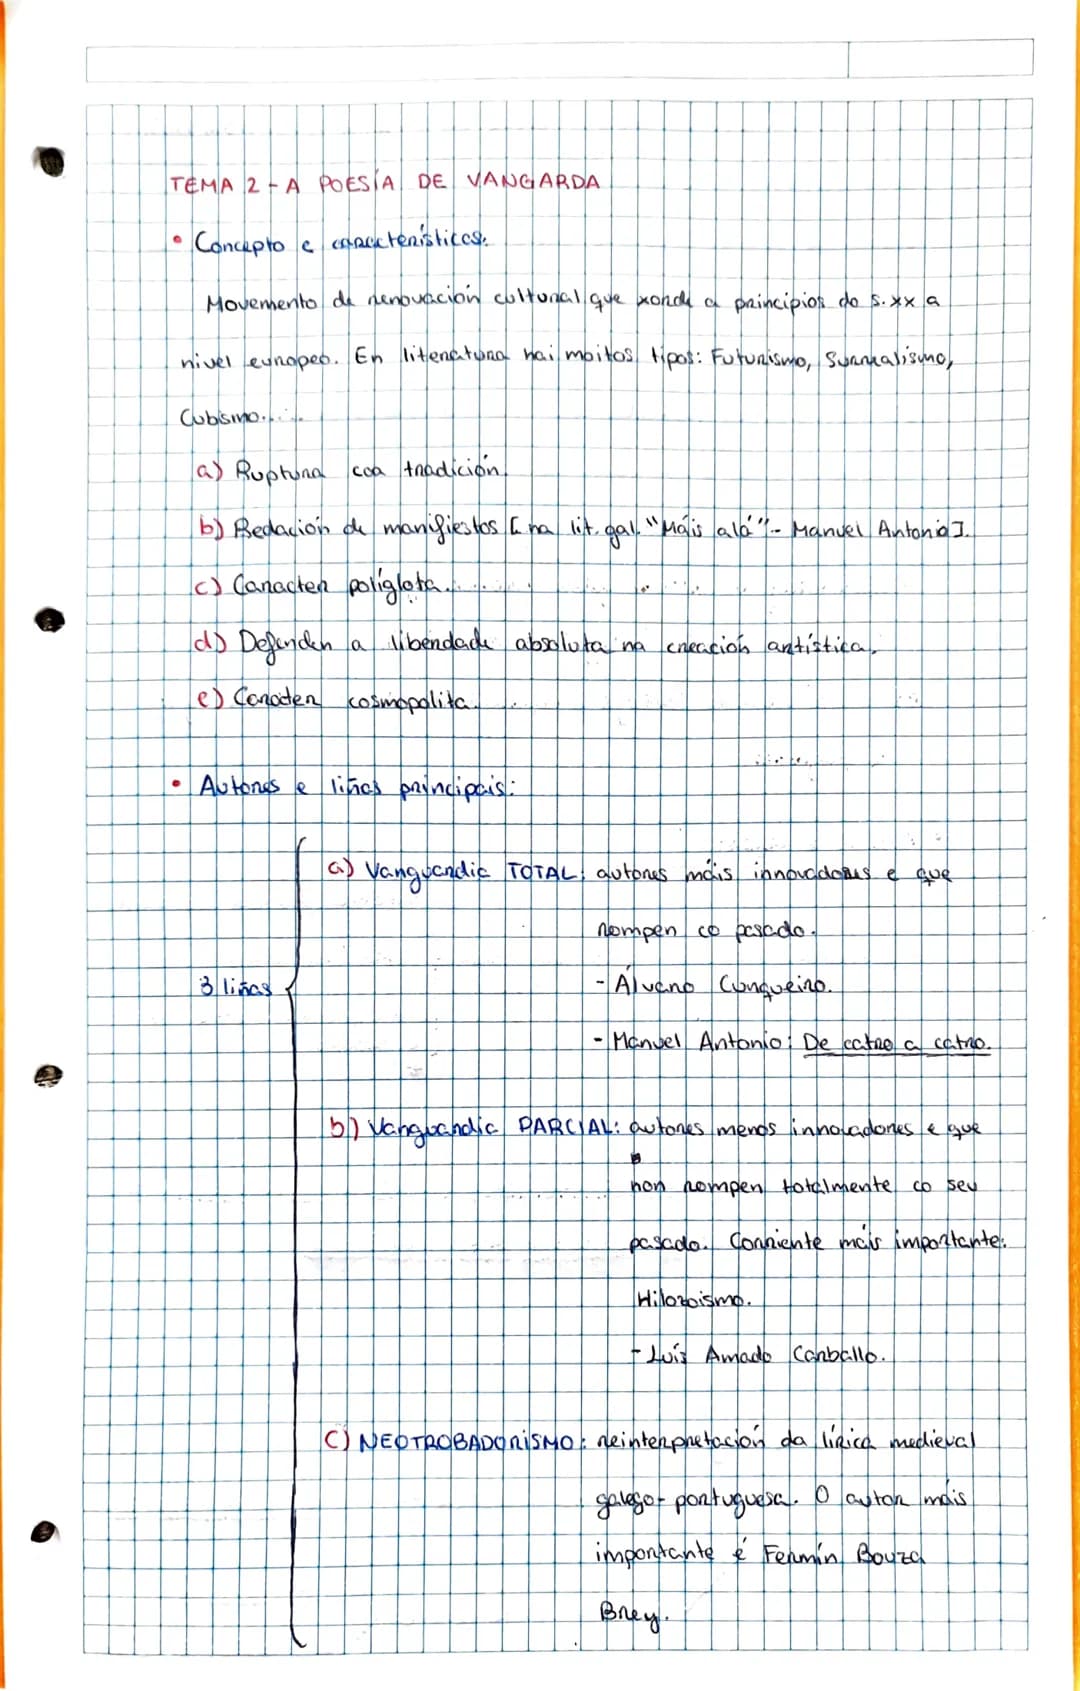 TEMA 2 - A POESÍA DE VANGARDA
• Concepto e características.
Movemento de renovación cultural que xorde a principios do s. xx a
nivel europeo. En literatura hai moitos tipos: Futurismo, Surrealismo,
Cubismo...
a) Ruptura coa tradición.
b) Redación de manifiestos [na lit. gal. "Máis alá" - Manuel Antonio].
c) Caracter políglota.
d) Defenden a liberdade absoluta na creación artística.
e) Caracter cosmopolita.
• Autores e liñas principais:
3 liñas
a) Vanguardia TOTAL: autores máis innovadores e que
rompen co pasado.
- Álvaro Cunqueiro.
- Manuel Antonio: De catro a catro.
b) Vanguardia PARCIAL: autores menos innovadores e que
non rompen totalmente co seu
pasado. Corriente máis importante:
Hilozoismo.
- Luís Amado Carballo.
C) NEOTROBADORISMO: reinterpretación da lírica medieval
galego-portuguesa. O autor máis
importante é Fermín Bouza
Brey.